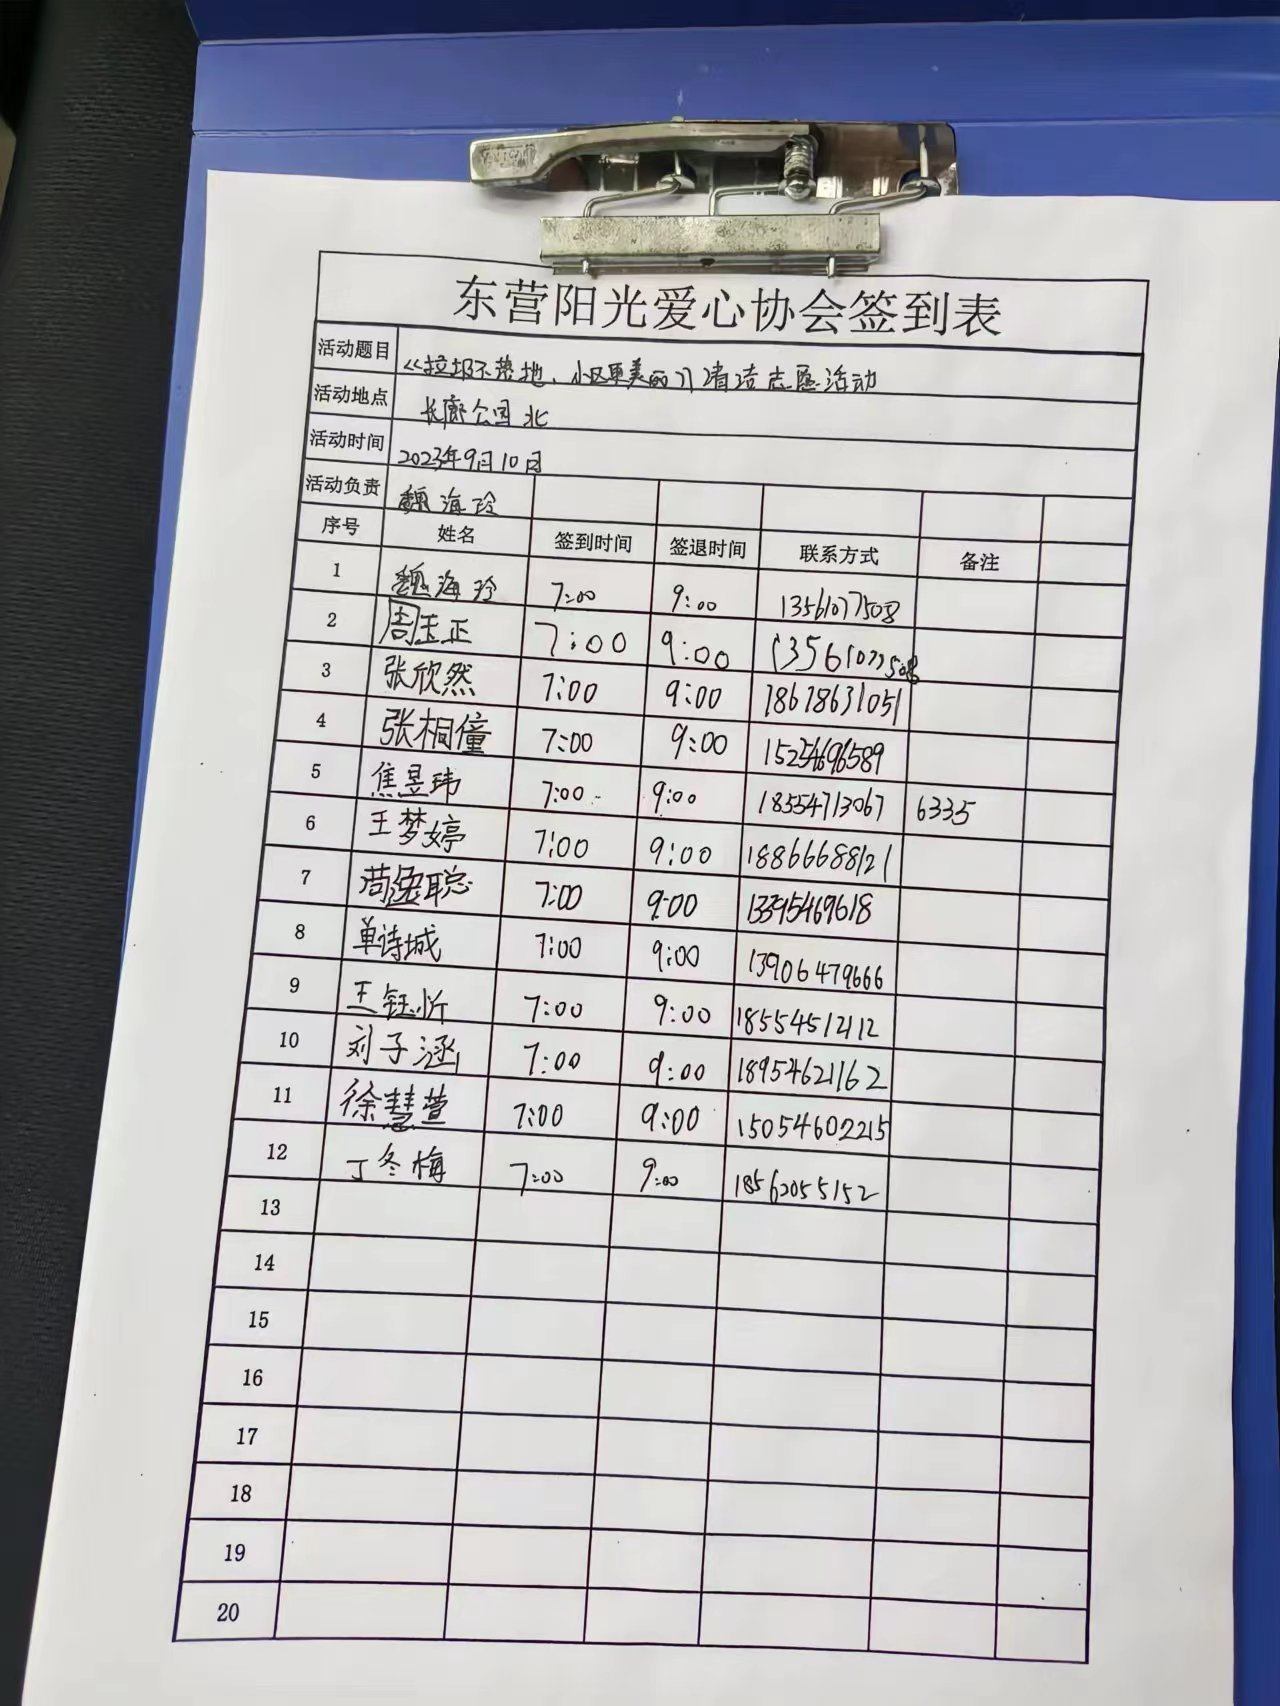 东营阳光爱心协会签到表
活动题目 《垃圾不落地、小区更美丽》清洁志愿活动
活动地点 长廊公园北
活动时间 2023年9月10日
活动负责 魏海玲
序号 姓名 签到时间 签退时间 联系方式 备注
1 魏海玲 7:00 9:00 13561077508
2 周玉正 7:00 9:00 13561077508
3 张欣然 7:00 9:00 18678631051
4 张桐僮 7:00 9:00 15254696589
5 焦昱玮 7:00 9:00 18554713067 6335
6 王梦婷 7:00 9:00 18866688121
7 苟逸聪 7:00 9:00 13395469618
8 单诗城 7:00 9:00 13906479666
9 王钰忻 7:00 9:00 18554512112
10 刘子涵 7:00 9:00 18954621162
11 徐慧萱 7:00 9:00 15054602215
12 丁冬梅 7:00 9:00 18562055152
13
14
15
16
17
18
19
20